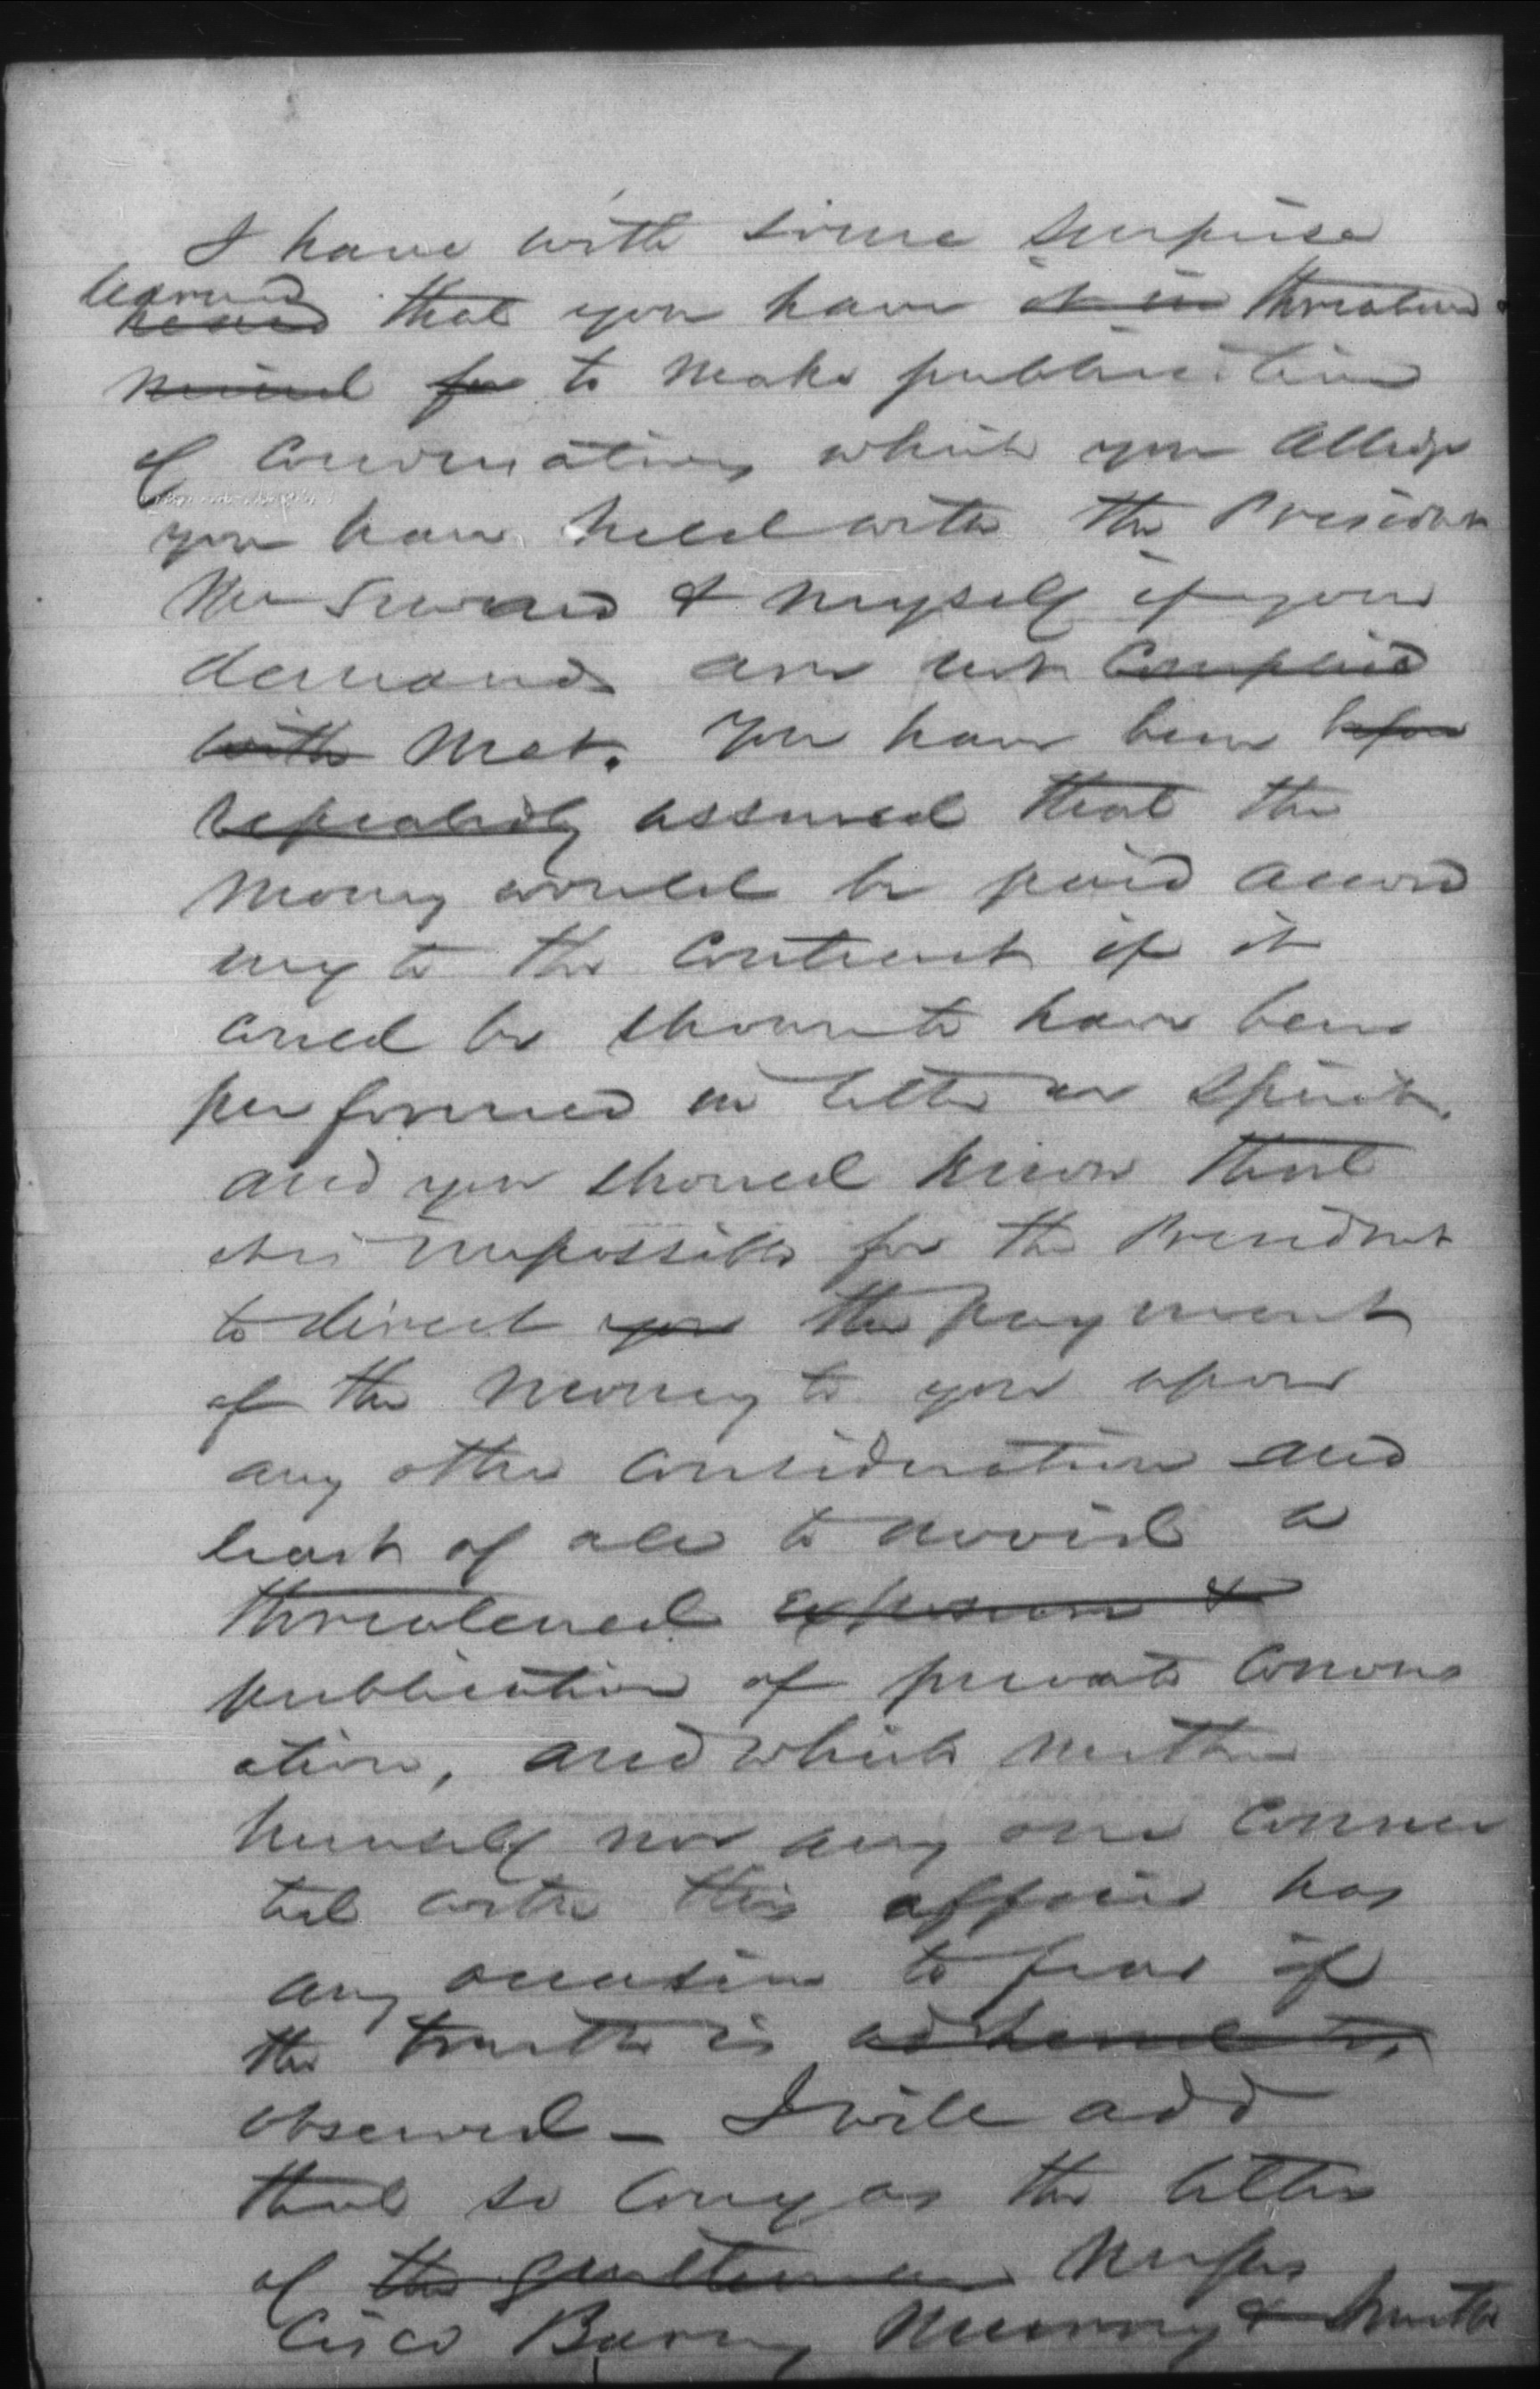 I have with some surprise
learned
heard that you have it in threatened
mind for to make publication
of conversations which you allege
you have held with the President
Mr Seward & myself if your
demands are not complied
with met. You have been before
repeatedly assured that the
money would be paid accord
ing to the contract if it
could be shown to have been
performed in letter or spirit,
and you should know that
it is impossible for the President
to direct you the payment
of the money to you upon
any other consideration and
least of all to avoid a
threatened exposure &
publication of private convers
ation, and which neither
himself nor any one connec
ted with this affair has
any occasion to fear if
the truth is adhered to,
observed – I will add
that so long as the letter
of the gentlemen Messrs
Cisco Barney &